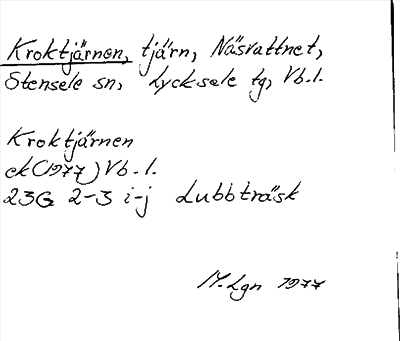 Kroktjärnen, tjärn, Näsvattnet,
Stensele sn, Lycksele tg, Vb.l.
Kroktjärnen
ek(1977) Vb.l.
23G 2-3 i-j Lubbträsk
M.Lgn 1977